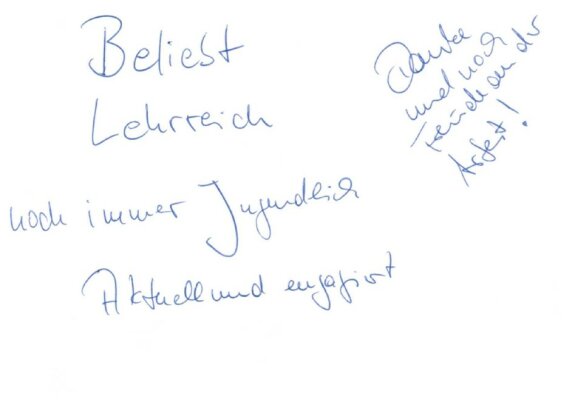 Beliebt
Lehrreich
noch immer Jugendlich
Aktuell und engagiert
Danke
und noch
Freude an der
Arbeit!